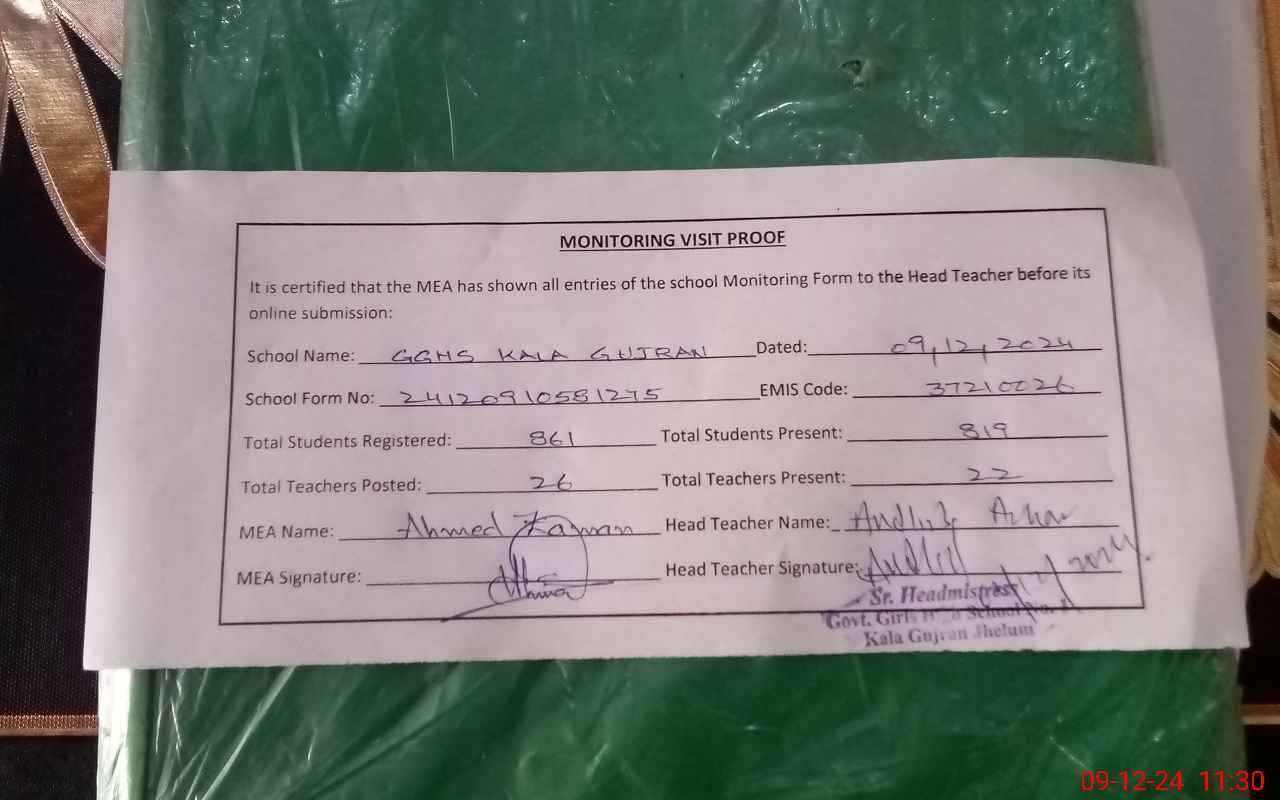 MONITORING VISIT PROOF
It is certified that the MEA has shown all entries of the school Monitoring Form to the Head Teacher before its
online submission:
School Name: GGHS KALA GUJRAN Dated: 09,12,2024
School Form No: 24120910581275 EMIS Code: 37210026
Total Students Registered: 861 Total Students Present: 819
Total Teachers Posted: 26 Total Teachers Present: 22
MEA Name: Ahmed Kamran Head Teacher Name: Azhar
MEA Signature: Head Teacher Signature:
Sr. Headmistress
Govt. Girls High School No. 1
Kala Gujran Jhelum
09-12-24 11:30